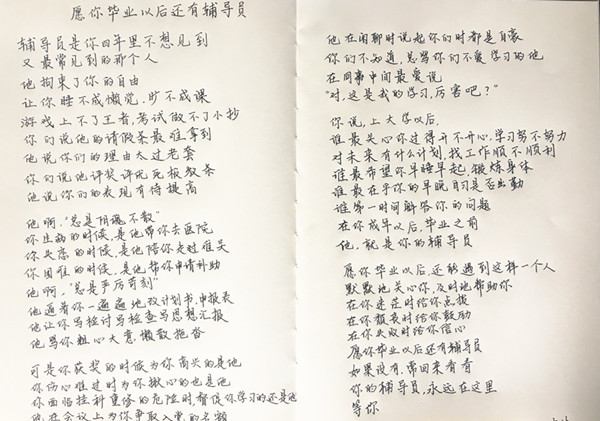 愿你毕业以后还有辅导员
辅导员是你四年里不想见到
又最常见到的那个人
他拘束了你的自由
让你睡不成懒觉,旷不成课
游戏上不了王者,考试做不了小抄
你们说他的请假条最难拿到
他说你们的理由太过老套
你们说他评奖评优死板教条
他说你们的表现有待提高
他啊,“总是阴魂不散”
你生病的时候,是他帮你去医院
你失恋的时候,是他陪你走过难关
你困难的时候,是他帮你申请补助
他啊,“总是严厉苛刻”
他逼着你一遍遍地改计划书,申报表
他让你写检讨写检查写思想汇报
他骂你粗心大意,懒散拖沓
可是你获奖的时候为你高兴的是他
你伤心难过时为你揪心的也是他
你面临挂科重修的危险时,督促你学习的还是他
他在会议上为你争取入党的名额
他在闲聊时说起你们时都是自豪
你们不知道,总骂你们不爱学习的他
在同事中间最爱说
“对,这是我的学习,厉害吧?”
你说,上大学以后,
谁最关心你过得开不开心,学习努不努力
对未来有什么计划,找工作顺不顺利
谁最希望你早睡早起 锻炼身体
谁最在乎你的早晚自习是否出勤
谁第一时间解答你的问题
在你成年以后,毕业之前
他,就是你的辅导员
愿你毕业以后,还能遇到这样一个人
默默地关心你,及时地帮助你
在你迷茫时给你点拨
在你颓丧时给你鼓励
在你失败时给你信心
愿你毕业以后还有辅导员
如果没有,常回来看看
你的辅导员,永远在这里
等你